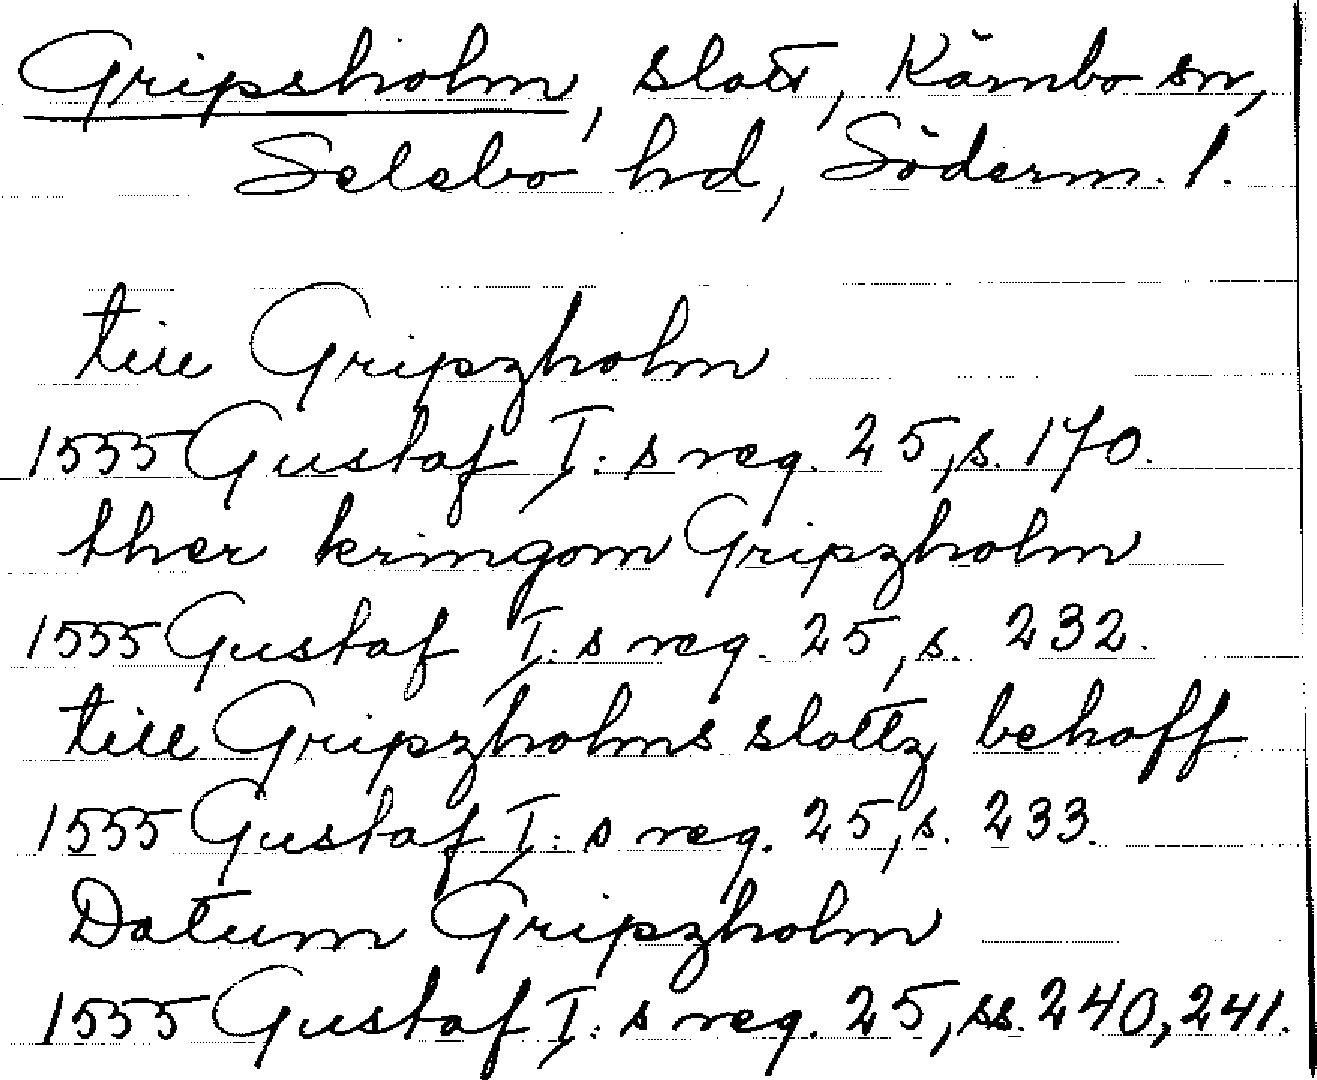 Gripsholm, slott, Kärnbo sn,
Selebo hd, Söderm. l.
till Gripzholm
1555 Gustaf I:s reg. 25, s. 170.
ther kringom Gripzholm
1555 Gustaf I:s reg. 25, s. 232.
till Gripzholms slottz behoff
1555 Gustaf I:s reg. 25, s. 233.
Datum Gripzholm
1555 Gustaf I:s reg. 25, ss. 240, 241.